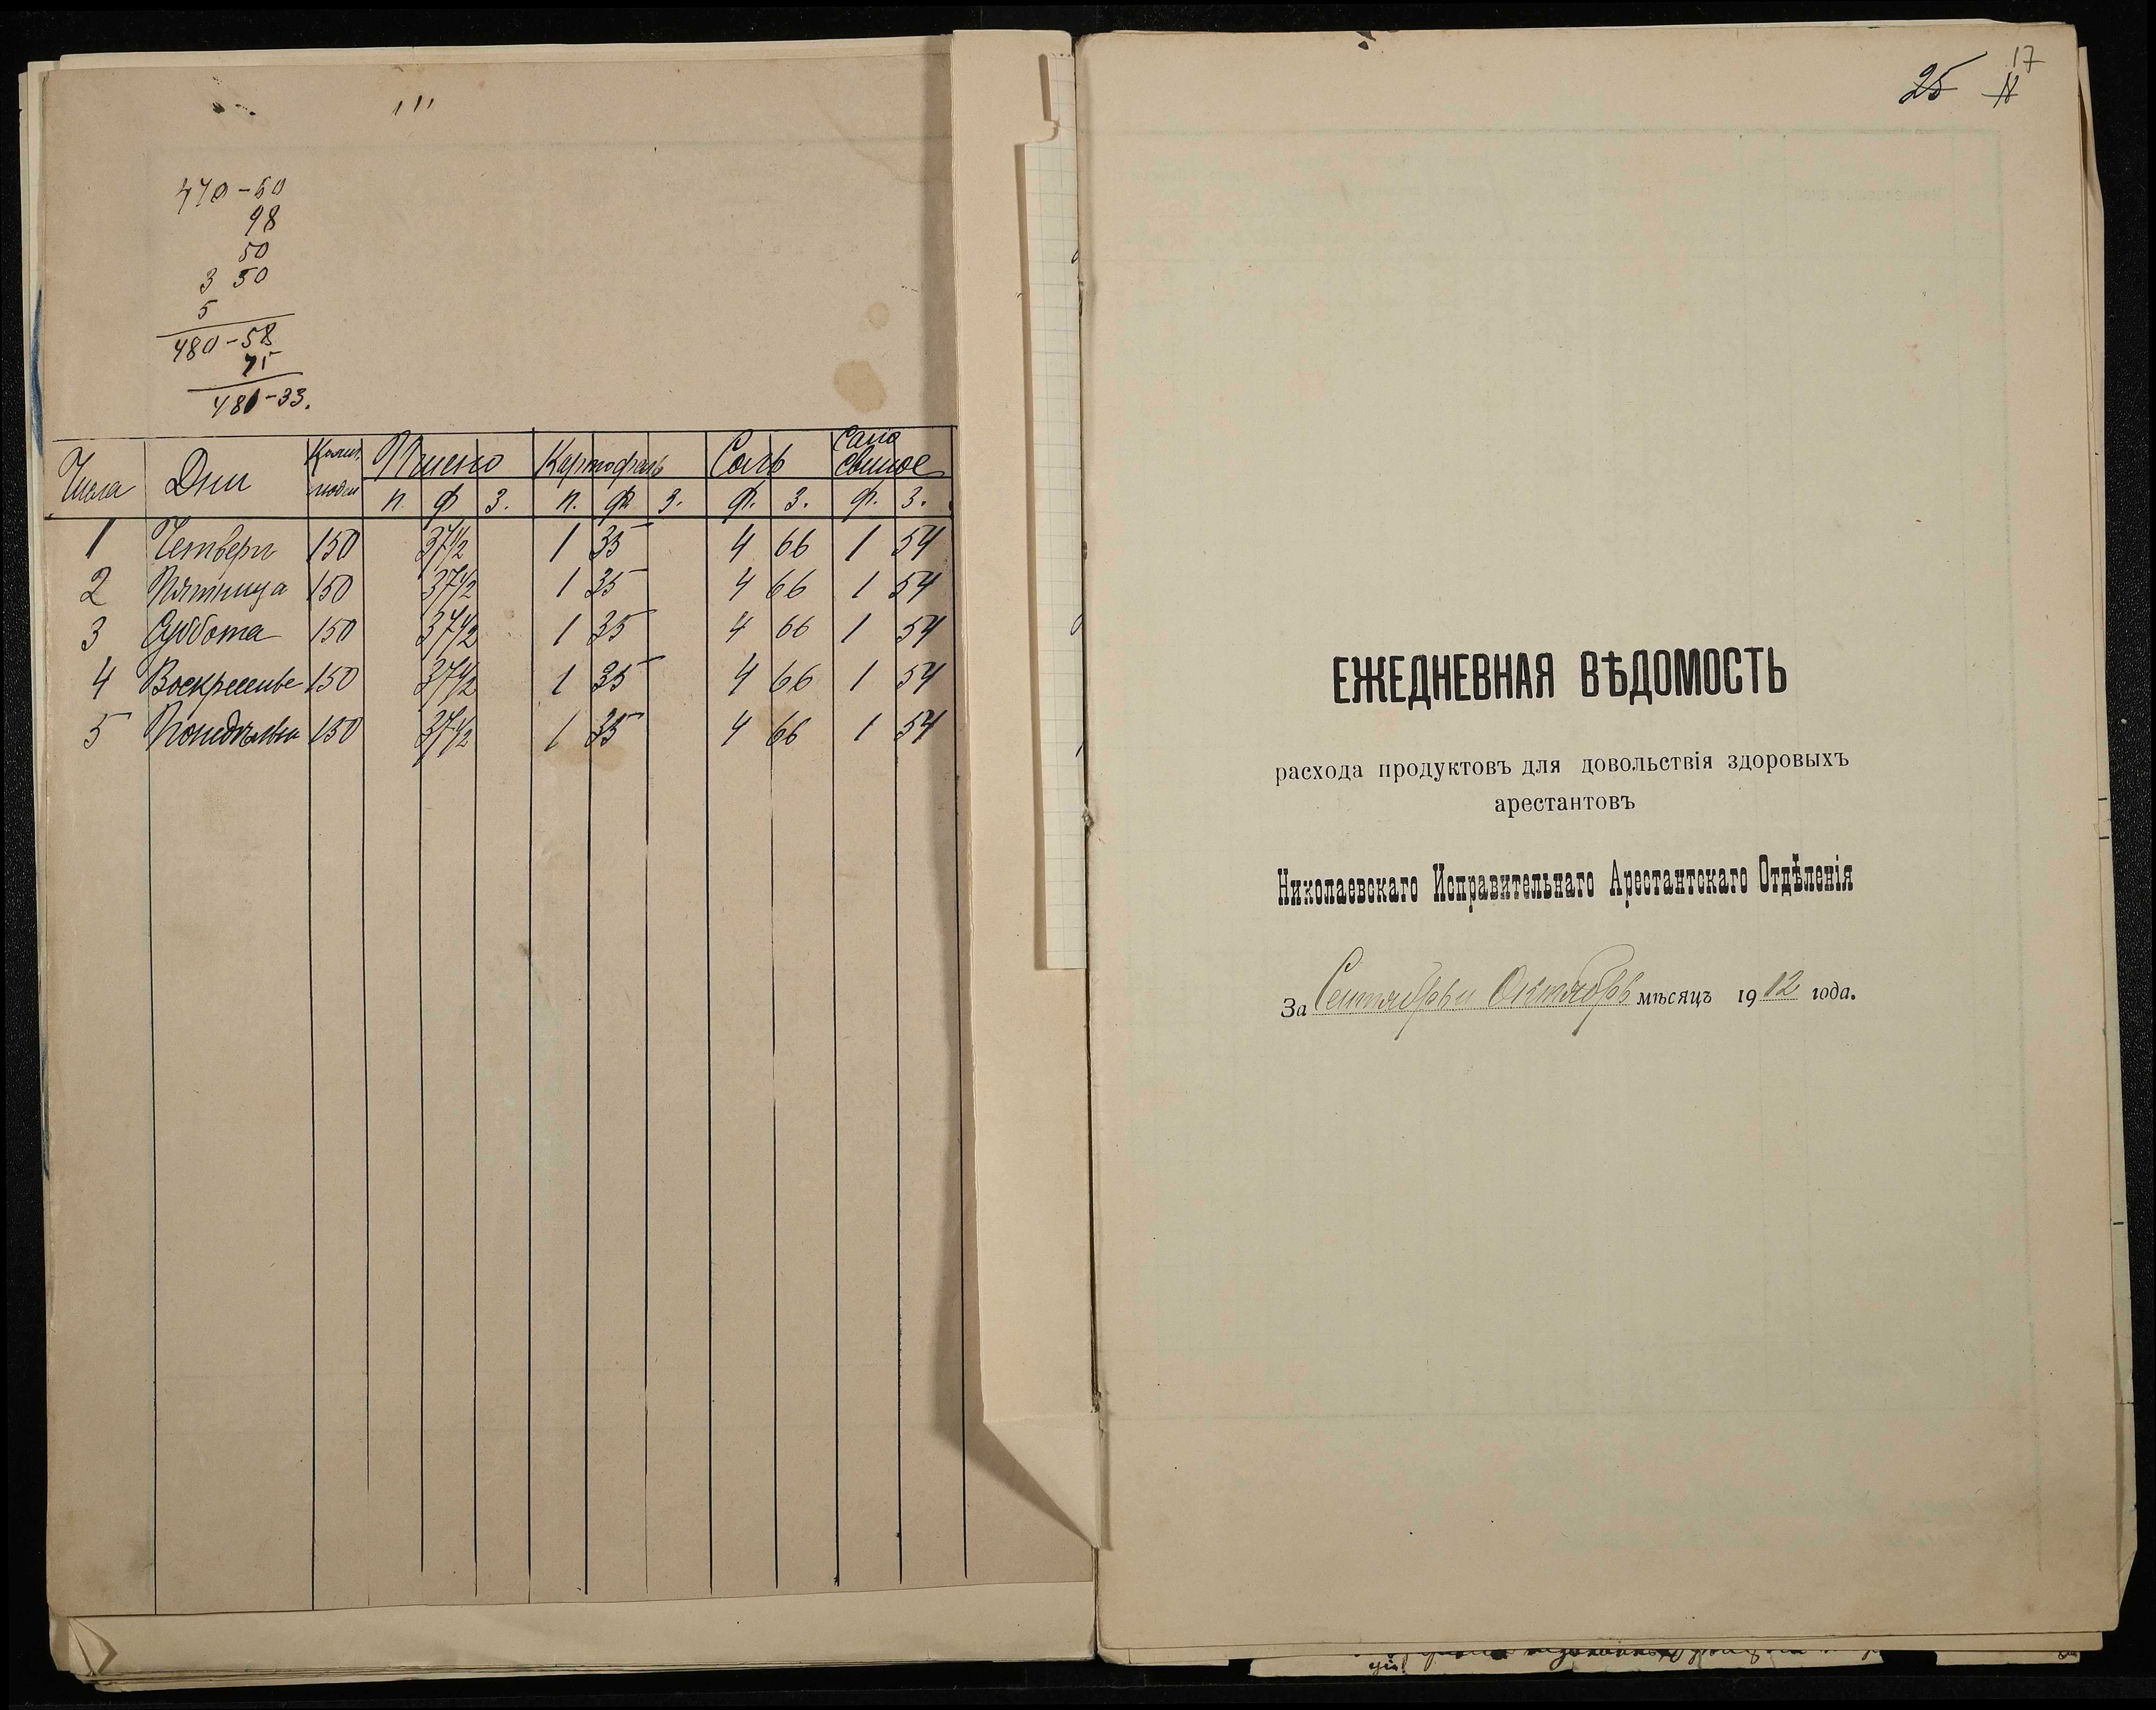 470-60
98
50
3 50
5
480-58
75
481-33.
Числа Дни Колич. людей Пшено Картофель Соль Сало свиное
п. ф з. п. ф. з. ф. з. ф. з.
1 Четверг 150 37½ 1 35 4 66 1 54
2 Пятница 150 37½ 1 35 4 66 1 54
3 Суббота 150 37½ 1 35 4 66 1 54
4 Воскресенье 150 37½ 1 35 4 66 1 54
5 150 37½ 1 35 4 66 1 54
25 17
ЕЖЕДНЕВНАЯ ВѢДОМОСТЬ
расхода продуктовъ для довольствія здоровыхъ
арестантовъ
Николаевскаго Исправительнаго Арестантскаго Отдѣленія
За Сентябрь и Октябрь мѣсяцъ 1912 года.